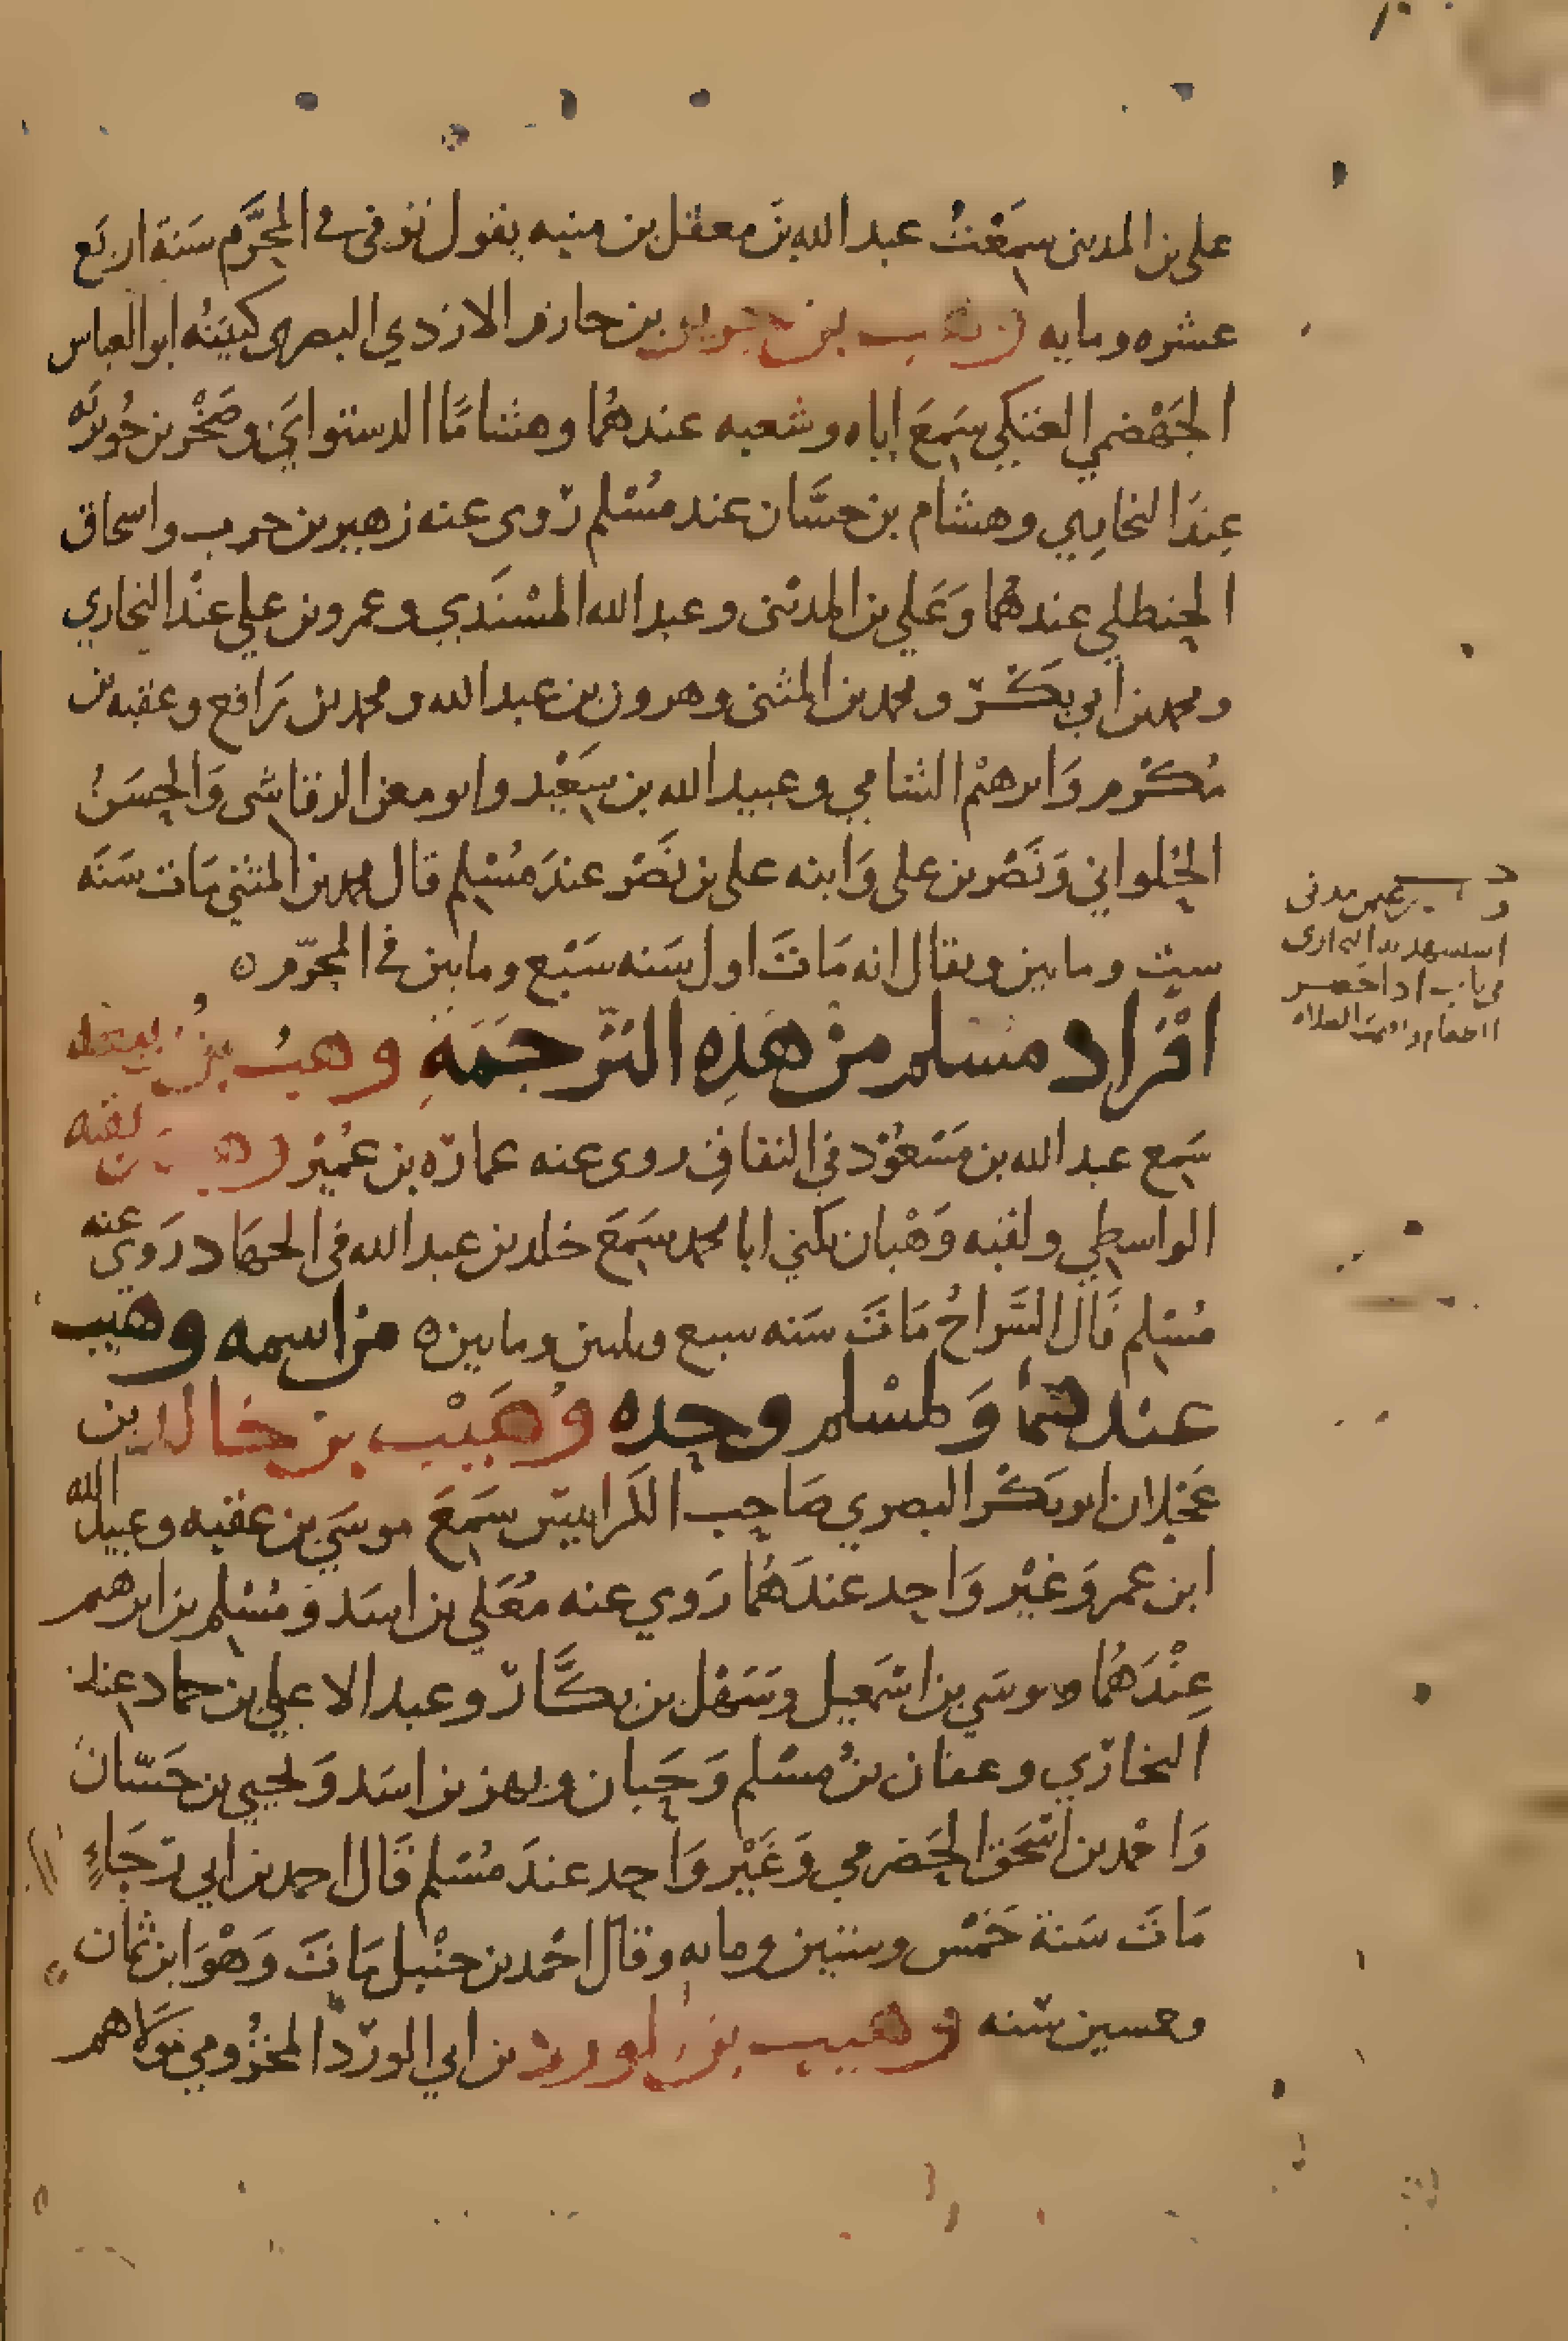 على بن المدينى سمعت عبد الله بن معقل بن منبه يقول توفى فى المحرم سنة اربع
عشره ومايه وهب بن جرير بن حازم الازدي البصرى كنيته ابو العباس
الجهضمي العتكي سمع اباه وشعبه عندهما وهشاما الدستوايى وصخر بن جويريه
عند البخاري وهشام بن حسان عند مسلم روى عنه زهير بن حرب واسحاق
الحنطلي عندهما وعلي بن المدينى وعبد الله المسندي وعمرو بن علي عند البخاري
ومحمد بن ابي بكر ومحمد بن المثنى وهرون بن عبد الله ومحمد بن رافع وعقبه بن
مكرم وابرهيم الشامي وعبيد الله بن سعيد وابو معن الرقاشى والحسن
الحلواني ونصر بن على وابنه على بن نصر عند مسلم قال محمد بن المثني مات سنه
ست وماتين ويقال انه مات اول سنه سبع وماتين في المحرم ه
افراد مسلم من هذه الترجمة وهب بن ربيعه
سمع عبد الله بن مسعود في النفاق روى عنه عماره بن عمير وهب بن بقيه
الواسطي ولقبه وهبان يكني ابا محمد سمع خلد بن عبد الله فى الجهاد روي عنه
مسلم قال السراح مات سنه سبع وثلثين وماتين ه من اسمه وهيب
عندهما ولمسلم وحده وهيب بن خالد بن
عجلان ابو بكر البصري صاحب الكرابيس سمع موسي بن عقبه وعبيد الله
ابن عمر وغير واحد عندهما روي عنه معلي بن اسد ومسلم بن ابرهيم
عندهما وموسي بن اسمعيل وسهل بن بكار وعبد الاعلي بن حماد عند
البخاري وعفان بن مسلم وحبان وبهز بن اسد ويحيي بن حسان
واحمد بن اسحق الحضرمي وغير واحد عند مسلم قال احمد بن ابي رجاء
مات سنة خمس وستين ومايه وقال احمد بن حنبل مات وهو ابن ثمان
وخمسين سنه وهيب بن الورد بن ابي الورد المخزومي مولاهم